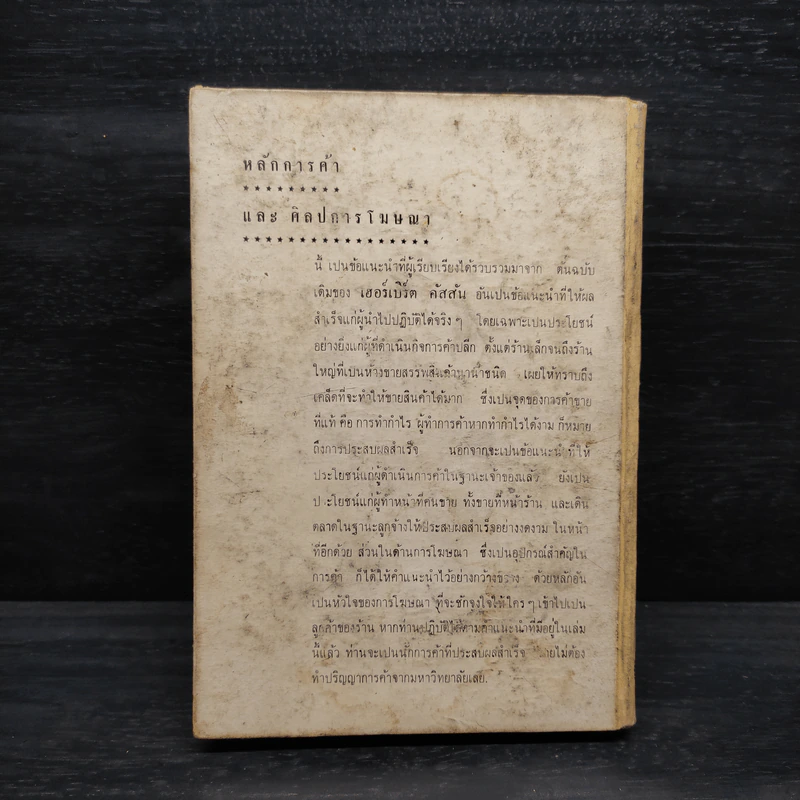 หลักการค้า
*********
และ ศิลปการโฆษณา
*****************
นี้ เปนข้อแนะนำที่ผู้เรียบเรียงได้รวบรวมมาจาก ต้นฉบับ
เดิมของ เฮอร์เบิร์ต คัสสัน อันเปนข้อแนะนำที่ให้ผล
สำเร็จแก่ผู้นำไปปฏิบัติได้จริง ๆ โดยเฉพาะเปนประโยชน์
อย่างยิ่งแก่ผู้ที่ดำเนินกิจการค้าปลีก ตั้งแต่ร้านเล็กจนถึงร้าน
ใหญ่ที่เปนห้างขายสรรพสินค้านานาชนิด เผยให้ทราบถึง
เคล็ดที่จะทำให้ขายสินค้าได้มาก ซึ่งเปนจุดของการค้าขาย
ที่แท้ คือ การทำกำไร ผู้ทำการค้าหากทำกำไรได้งาม ก็หมาย
ถึงการประสบผลสำเร็จ นอกจากจะเปนข้อแนะนำที่ให้
ประโยชน์แก่ผู้ดำเนินการค้าในฐานะเจ้าของแล้ว ยังเปน
ประโยชน์แก่ผู้ทำหน้าที่คนขาย ทั้งขายที่หน้าร้าน และเดิน
ตลาดในฐานะลูกจ้างให้ประสบผลสำเร็จอย่างงดงาม ในหน้า
ที่อีกด้วย ส่วนในด้านการโฆษณา ซึ่งเปนอุปกรณ์สำคัญใน
การค้า ก็ได้ให้คำแนะนำไว้อย่างกว้างขวาง ด้วยหลักอัน
เปนหัวใจของการโฆษณา ที่จะชักจูงใจให้ใคร ๆ เข้าไปเปน
ลูกค้าของร้าน หากท่านปฏิบัติได้ตามคำแนะนำที่มีอยู่ในเล่ม
นี้แล้ว ท่านจะเปนนักการค้าที่ประสบผลสำเร็จ ไม่ต้อง
ทำปริญญาการค้าจากมหาวิทยาลัยเลย.